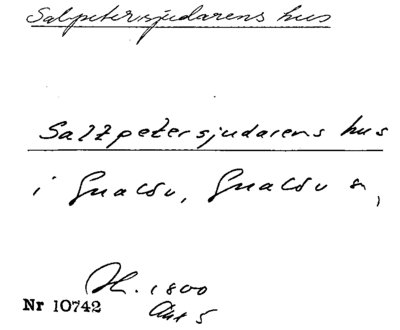 Salpetersjudarens hus
Saltpetersjudarens hus
i Gualöv, Gualöv s,
H. 1800
Nr 10742